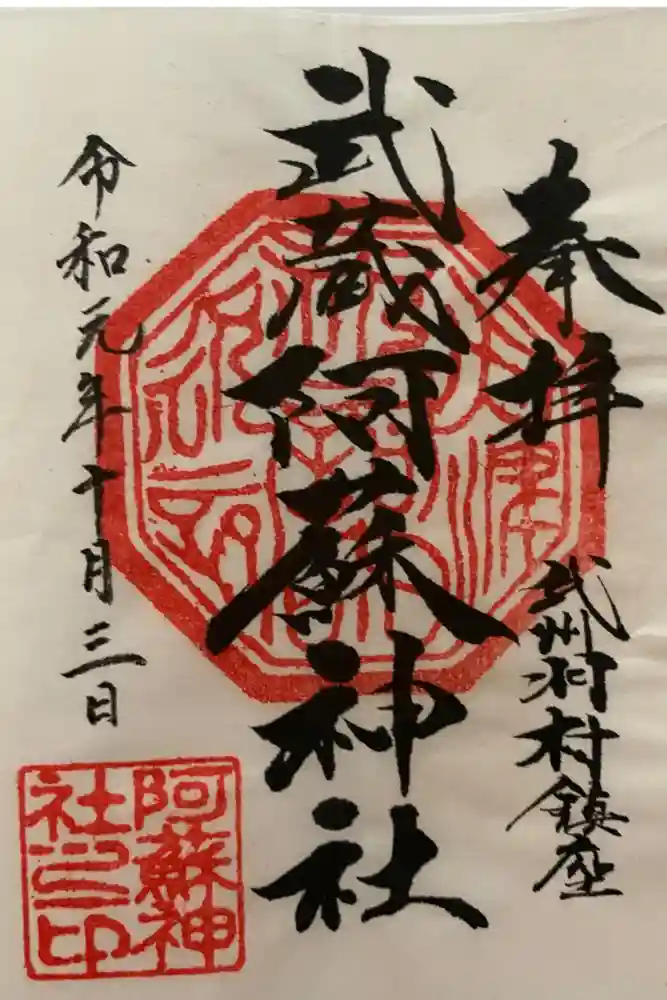 奉拝
武州羽村鎮座
武蔵阿蘇神社
令和元年十月三日
阿蘇神
社之印